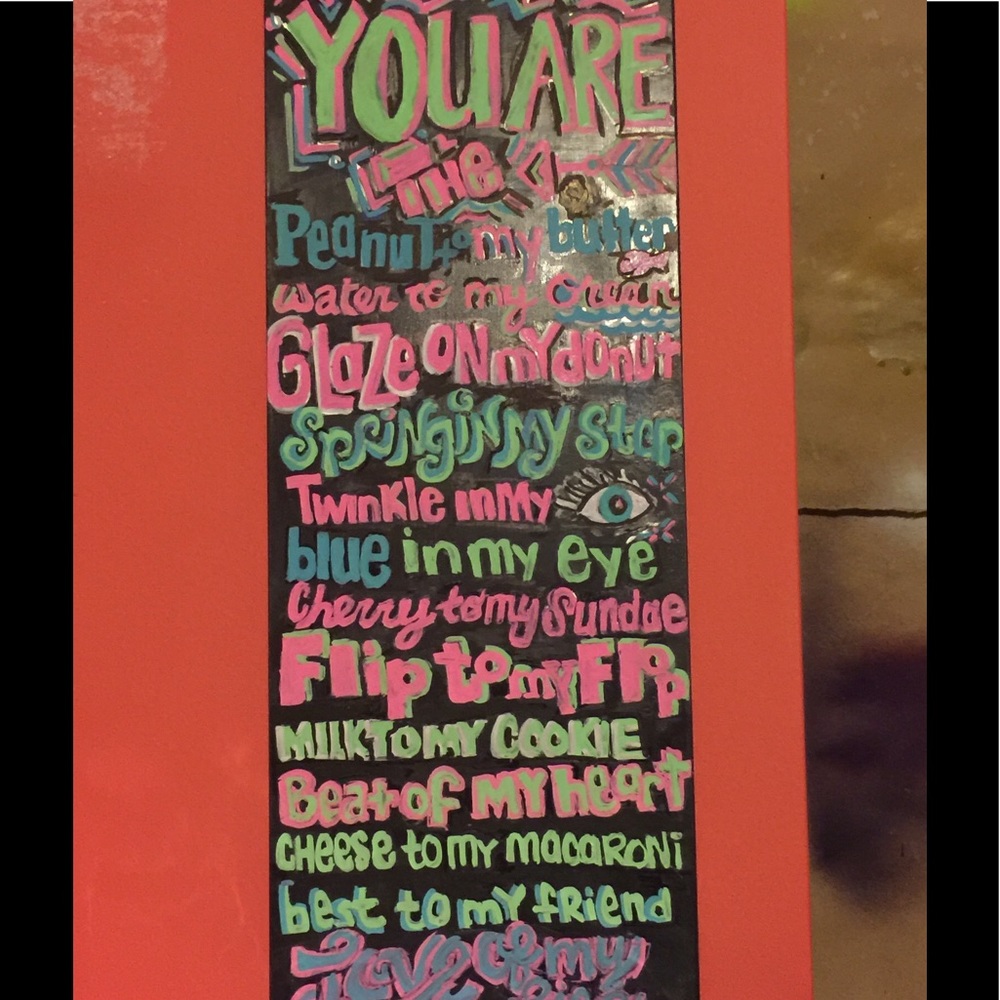 YOU ARE
THE
Peanut to my butter
water to my Ocean
GLaZe ON mY donut
SpRiNg iN My Step
TwiNKle iN My
blue in my eye
Cherry to my Sundae
Flip to my Flop
MiLK TO MY COOKiE
Beat of MY heart
CHeese to my macaRoNi
best to my fRiend
Love of my